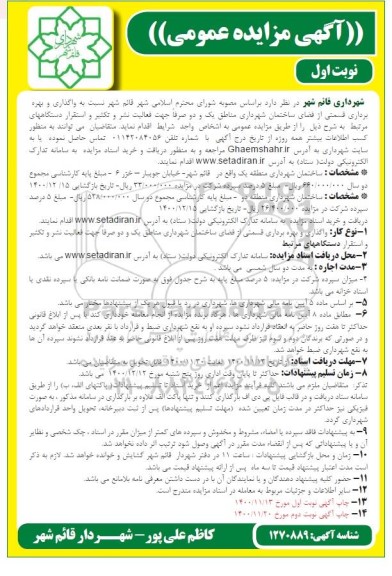 ((آگهی مزایده عمومی))
نوبت اول
شهرداری قائم شهر در نظر دارد براساس مصوبه شورای محترم اسلامی شهر قائم شهر نسبت به واگذاری و بهره
برداری قسمتی از فضای ساختمان شهرداری مناطق یک و دو صرفا جهت فعالیت نشر و تکثیر و استقرار دستگاههای
مرتبط به شرح ذیل را از طریق مزایده عمومی به اشخاص واجد شرایط اقدام نماید. متقاضیان می توانند به منظور
کسب اطلاعات بیشتر همه روزه از تاریخ درج آگهی با شماره تلفن ۰۱۱۴۲۰۸۴۰۵۶ تماس حاصل نموده یا به
سایت شهرداری به آدرس Ghaemshahr.ir مراجعه و به منظور دریافت و خرید اسناد مزایده به سامانه تدارک
الکترونیکی دولت( ستاد) به آدرس www.setadiran.ir اقدام نمایند.
* مشخصات : ساختمان شهرداری منطقه یک واقع در قائم شهر- خیابان جویبار - مبلغ پایه کارشناسی مجموع
دو سال ۶۶۰/۰۰۰/۰۰۰ ریال- مبلغ ۵ درصد سپرده شرکت در مزایده ۳۳/۰۰۰/۰۰۰ ریال- تاریخ بازگشایی ۱۴۰۰/۱۲/۱۵
* مشخصات : ساختمان شهرداری منطقه دو - مبلغ پایه کارشناسی مجموع دو سال ریال- مبلغ ۵ درصد
سپرده شرکت در مزایده ریال- تاریخ بازگشایی ۱۴۰۰/۱۲/۱۵
دریافت و خرید اسناد مزایده به سامانه تدارک الکترونیکی دولت( ستاد) به آدرس www.setadiran.ir اقدام نمایند.
۱- نوع کار: واگذاری و بهره برداری قسمتی از فضای ساختمان شهرداری مناطق یک و دو صرفا جهت فعالیت نشر و تکثیر
و استقرار دستگاههای مرتبط
۲- محل دریافت اسناد مزایده: سامانه تدارک الکترونیکی دولت( ستاد) به آدرس www.setadiran.ir می باشد.
۳- مدت اجاره : به مدت دو سال شمسی می باشد.
۴- میزان سپرده شرکت در مزایده: ۵ درصد مبلغ پایه به شرح جدول فوق به صورت ضمانت نامه بانکی یا سپرده نقدی یا
اسناد خزانه می باشد.
۵- بر اساس ماده ۵ آیین نامه مالی شهرداری ها، شهرداری در رد یا قبول هر یک از پیشنهادها مختار می باشد.
۶- مطابق ماده ۸ آیین نامه مالی شهرداری ها، هرگاه برنده مزایده از انجام معامله خودداری کند یا پس از ابلاغ قانونی
حداکثر تا هفت روز حاضر به انعقاد قرارداد نشود سپرده او به نفع شهرداری ضبط و قرارداد با نفر بعدی منعقد خواهد گردید
و در صورتی که برندگان دوم و سوم نیز ظرف مهلت هفت روز پس از ابلاغ قانونی حاضر به عقد قرارداد نشوند سپرده آن ها
به نفع شهرداری ضبط خواهد شد.
۷- مهلت دریافت اسناد:
۸- زمان تسلیم پیشنهادات: حداکثر تا پایان وقت اداری روز پنج شنبه مورخ ۱۴۰۰/۱۲/۱۲ می باشد.
۹- به پیشنهادات فاقد سپرده یا امضاء، مشروط و مخدوش و سپرده های کمتر از میزان مقرر در اسناد ، چک شخصی و نظایر
آن و یا پیشنهاداتی که پس از انقضاء مدت مقرر در آگهی وصول شود ترتیب اثر داده نخواهد شد.
۱۰- زمان و محل بازگشایی پیشنهادات : ساعت ۱۱ در دفتر شهردار قائم شهر گشایش و خوانده خواهد شد. لازم به ذکر
است مدت اعتبار پیشنهاد قیمت تا سه ماه پس از ارائه پیشنهاد قیمت می باشد.
۱۱- حضور کلیه پیشنهاد دهندگان و یا نمایندگان آن با در دست داشتن معرفی نامه بلامانع می باشد.
۱۲- سایر اطلاعات و جزئیات مربوط به معامله در اسناد مزایده مندرج است.
۱۳- چاپ آگهی نوبت اول مورخ ۱۴۰۰/۱۱/۱۳
۱۴- چاپ آگهی نوبت دوم مورخ ۱۴۰۰/۱۱/۲۰
شناسه آگهی: ۱۲۷۰۸۸۹
کاظم علی پور- شهردار قائم شهر